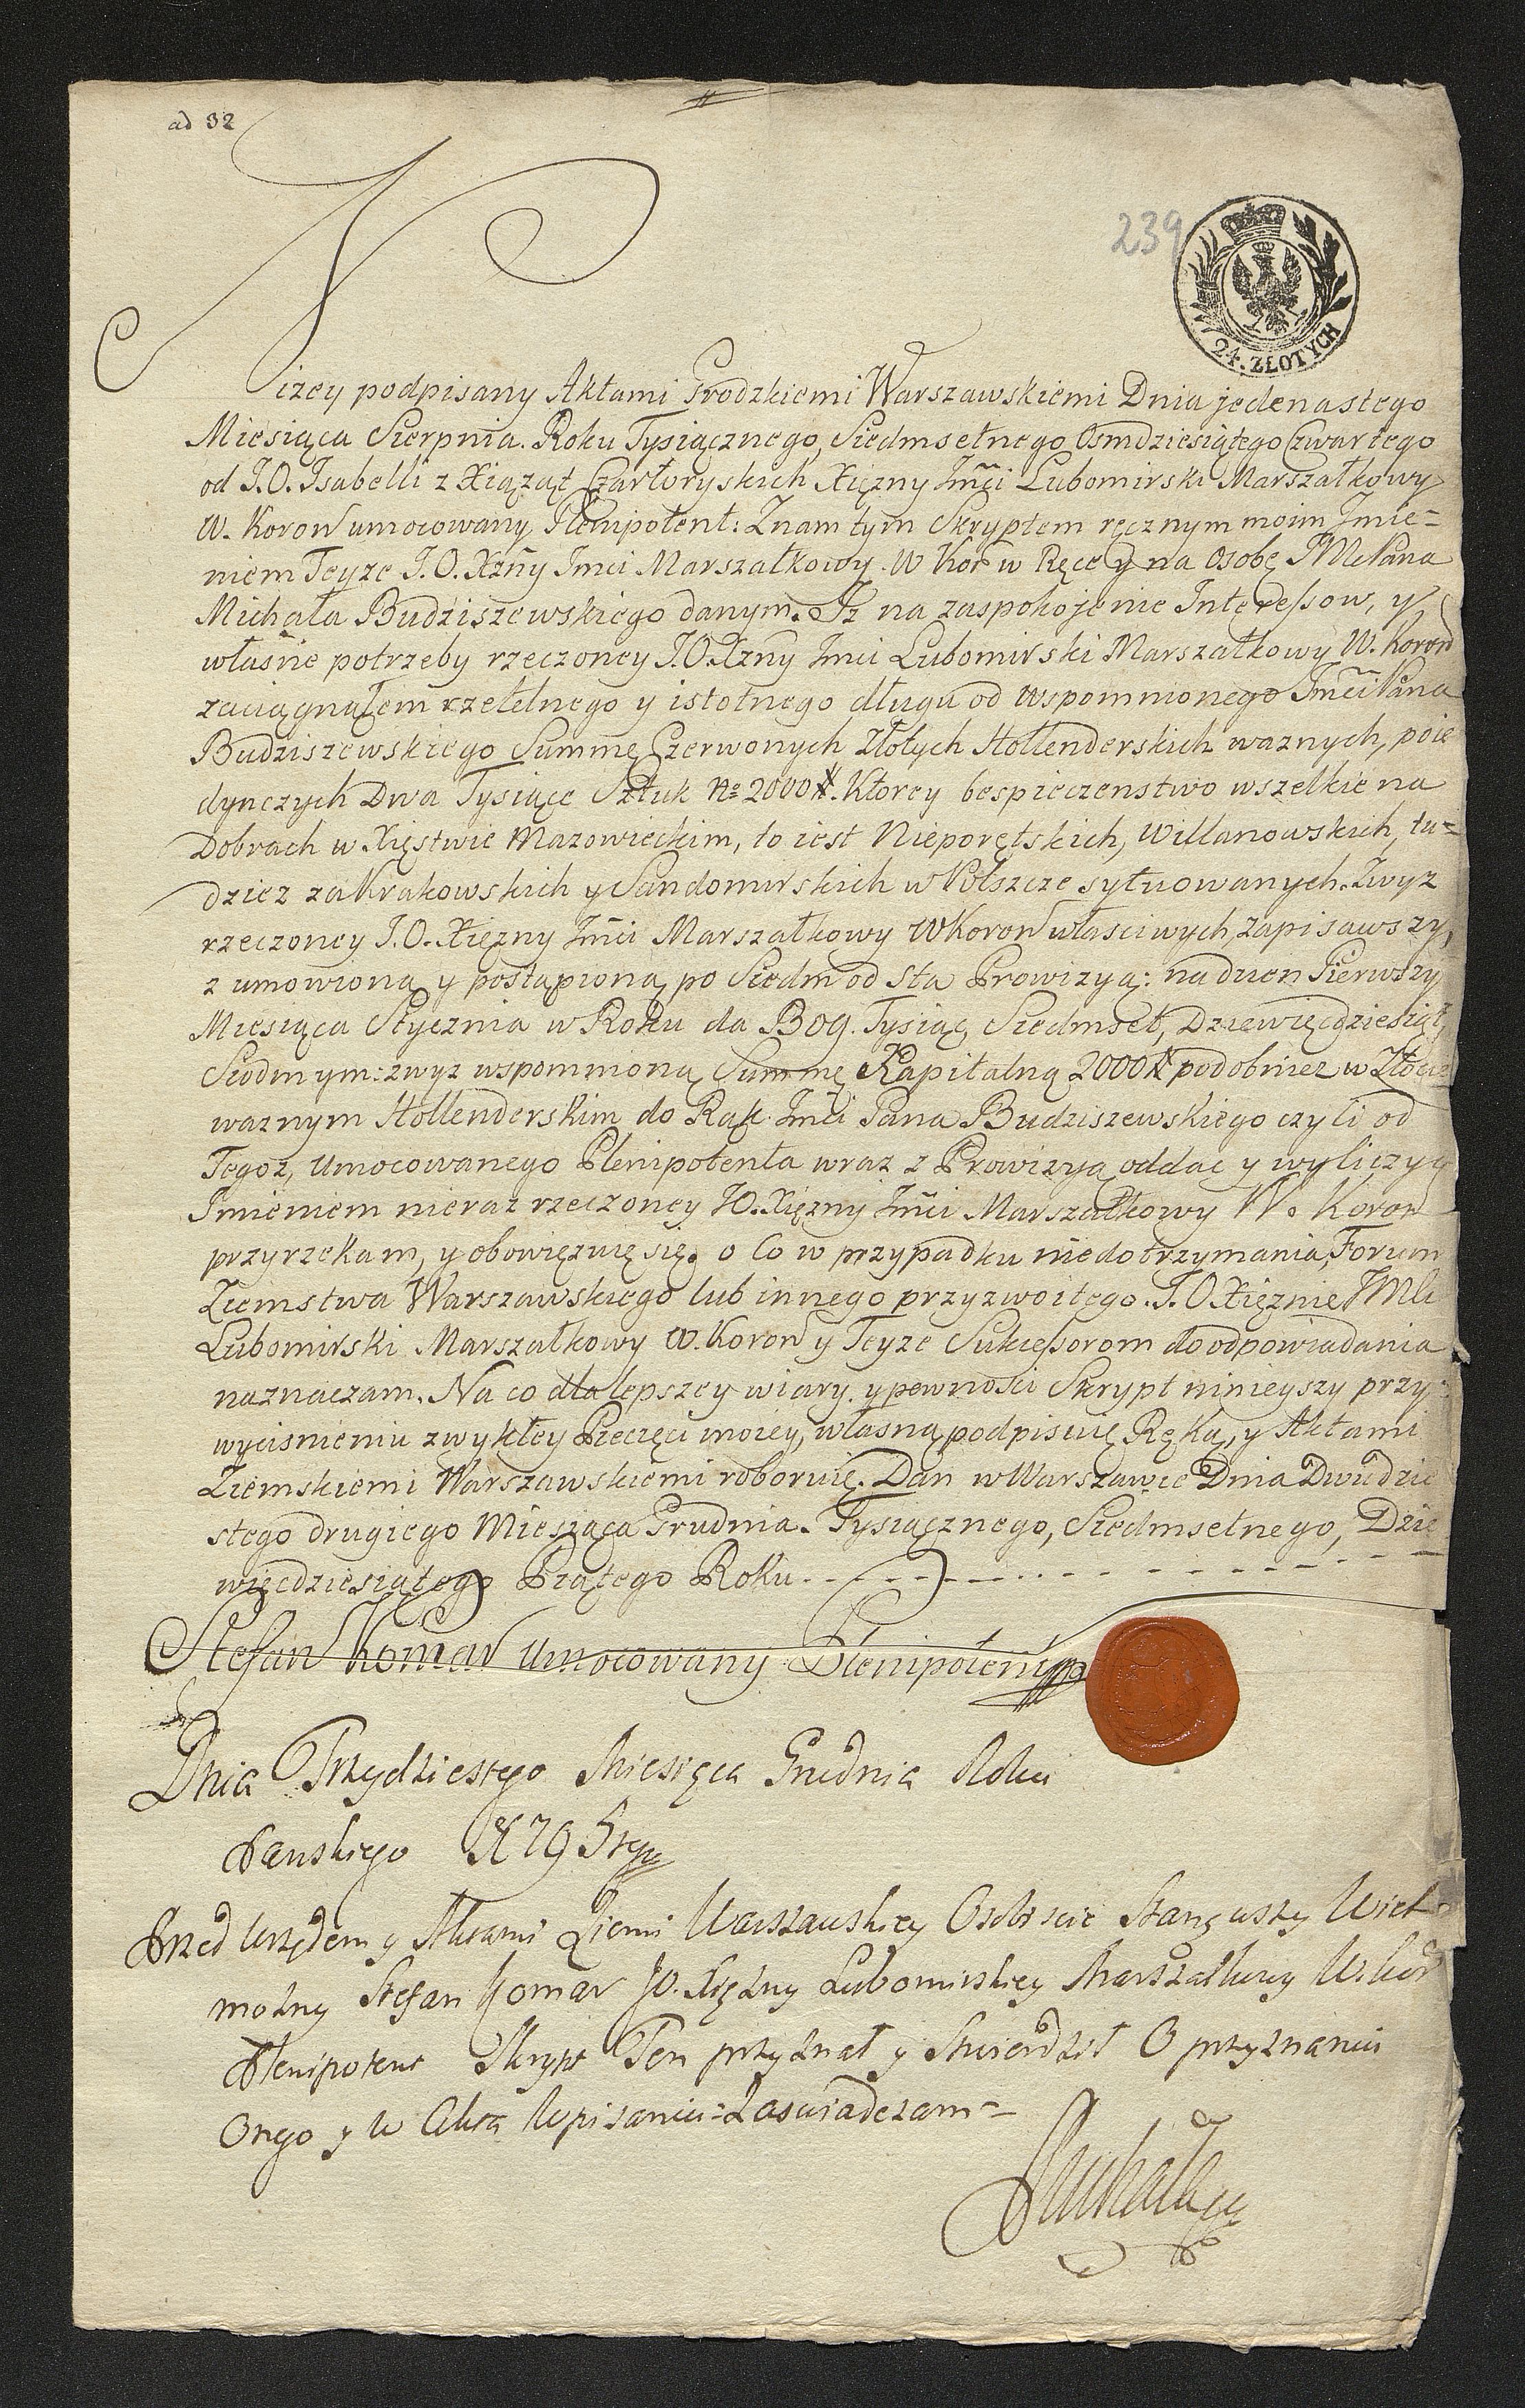 ad 32
239
24. ZŁOTYCH
Niżey podpisany Aktami Grodzkiemi Warszawskiemi Dnia jedenastego
Miesiąca Sierpnia. Roku Tysiącznego, Siedmsetnego Osmdziesiątego Czwartego
od J.O. Isabelli z Xiążąt Czartoryskich Xiężny Jmći Lubomirski Marszałkowy
W. Koron umocowany Plenipotent: Znam tym Skryptem ręcznym moim Jmie=
niem Teyże J.O. Xżny Jmci Marszałkowy. W Kor w Ręce y na Osobę JMcPana
Michała Budziszewskiego danym. Iż na zaspokojenie Interessow, y
własne potrzeby rzeczoney J.O. Xżny Jmci Lubomirski Marszałkowy W. Koron
zaciągnąłem rzetelnego y istotnego długu od wspomnionego Jmći Pana
Budziszewskiego Summę Czerwonych Złotych Hollenderskich ważnych, poie
dynczych Dwa Tysiące Sztuk No 2000 #. Ktorey bespieczenstwo wszelkie na
Dobrach w Xięstwie Mazowieckim, to iest Nieporętskich, Willanowskich, tu=
dzież za Krakowskich y Sandomirskich w Polszcze sytuowanych. Zwyż
rzeczoney J.O. Xiężny Jmći Marszałkowy W Koron własciwych, zapisawszy,
z umowioną y postąpioną po Siedm od Sta Prowizyą: na dzien Pierwszy
Miesiąca Stycznia w Roku da Bog. Tysiąc Siedmset, Dziewięcdziesiąt,
Siodmym: zwyż wspomnioną Summę Kapitalną 2000 # podobnież w Złocie
ważnym Hollenderskim do Rąk Jmći Pana Budziszewskiego czyli od
Tegoż, Umocowanego Plenipotenta wraz z Prowizyą oddac y wyliczyc
Jmieniem nieraz rzeczoney JO. Xiężny Jmći Marszałkowy W. Koron
przyrzekam, y obowięzuię się. o Co w przypadku niedotrzymania, Forum
Ziemstwa Warszawskiego lub innego przyzwoitego. J.O Xiężnie JMCi
Lubomirski Marszałkowy W. Koron y Teyże Sukcessorom do odpowiadania
naznaczam. Na co dla lepszey wiary y pewności Skrypt ninieyszy przy
wycisnieniu zwykłey Pieczęci moiey, własną podpisuię Ręką, y Aktami
Ziemskiemi Warszawskiemi roboruię. Dan w Warszawie Dnia Dwudzie
stego drugiego Miesiąca Grudnia. Tysiącznego, Siedmsetnego, Dzie
więcdziesiątego Piątego Roku
Stefan Komar Umocowany Plenipotent
Dnia Trzydziestego Miesięca Grudnia Roku
Panskiego 1795tego
Przed Urzędem y Aktami Ziemi Warszawskiey Osobiscie Stanąwszy Wiel
możny Stefan Komar JO. Xiężny Lubomirskiey Marszałkowy W. Kor
Plenipotent Skrypt Ten przyznał y Stwierdził O przyznaniu
Onego y w Akta Wpisaniu Zaswiadczam